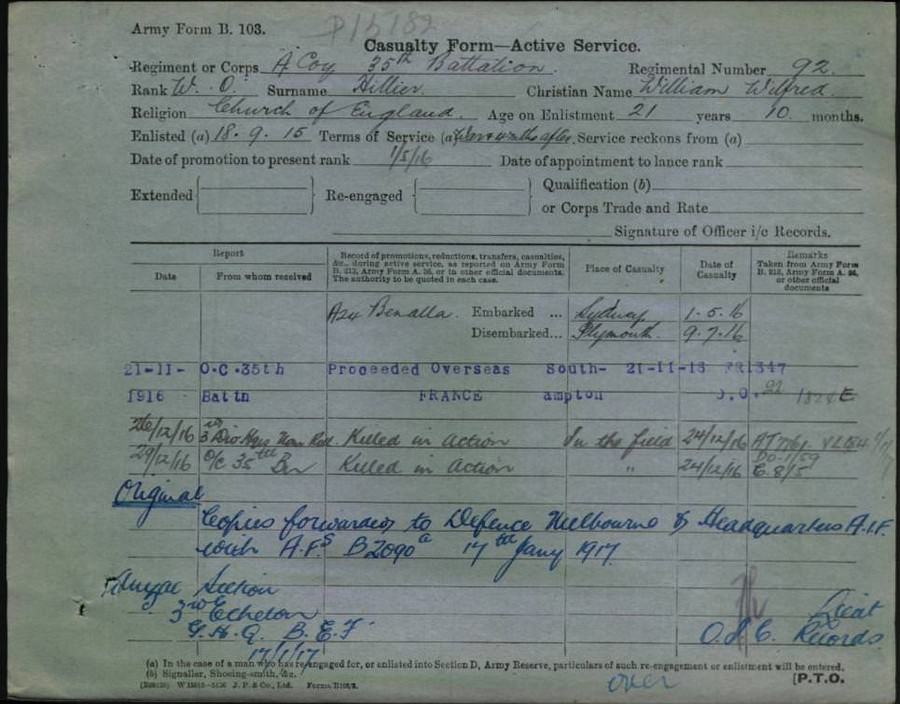 Army Form B. 103.
Casualty Form—Active Service.
Regiment or Corps A Coy 35th Battalion. Regimental Number 92.
Rank W. O. Surname Hillier Christian Name William Wilfred.
Religion Church of England. Age on Enlistment 21 years 10 months.
Enlisted (a) 18.9.15 Terms of Service (a) Service reckons from (a)
Date of promotion to present rank 1/5/16 Date of appointment to lance rank
Extended Re-engaged Qualification (b)
or Corps Trade and Rate
Signature of Officer i/c Records.
Report
Date From whom received
Record of promotions, reductions, transfers, casualties, &c., during active service, as reported on Army Form B. 213, Army Form A. 36, or in other official documents. The authority to be quoted in each case.
Place of Casualty
Date of Casualty
Remarks
Taken from Army Form B. 213, Army Form A. 36, or other official documents
A24 Benalla. Embarked ... Sydney 1-5-16
Disembarked... Plymouth. 9-7-16
21-11- O.C.35th Proceeded Overseas South- 21-11-16
1916 Battn FRANCE ampton
26/12/16 3rd Div Killed in Action In the field 24/12/16
29/12/16 O/C 35th Bn Killed in Action " 24/12/16
Original
Copies forwarded to Defence Melbourne & Headquarters A.I.F.
with A.Fs B2090a 17th Jany 1917.
Anzac Section
3rd Echelon
G.H.Q. B.E.F. Lieut
17/1/17 Records
(a) In the case of a man who has re-engaged for, or enlisted into Section D, Army Reserve, particulars of such re-engagement or enlistment will be entered.
(b) Signaller, Shoeing-smith, &c.
over [P.T.O.
J. P. & Co., Ltd.